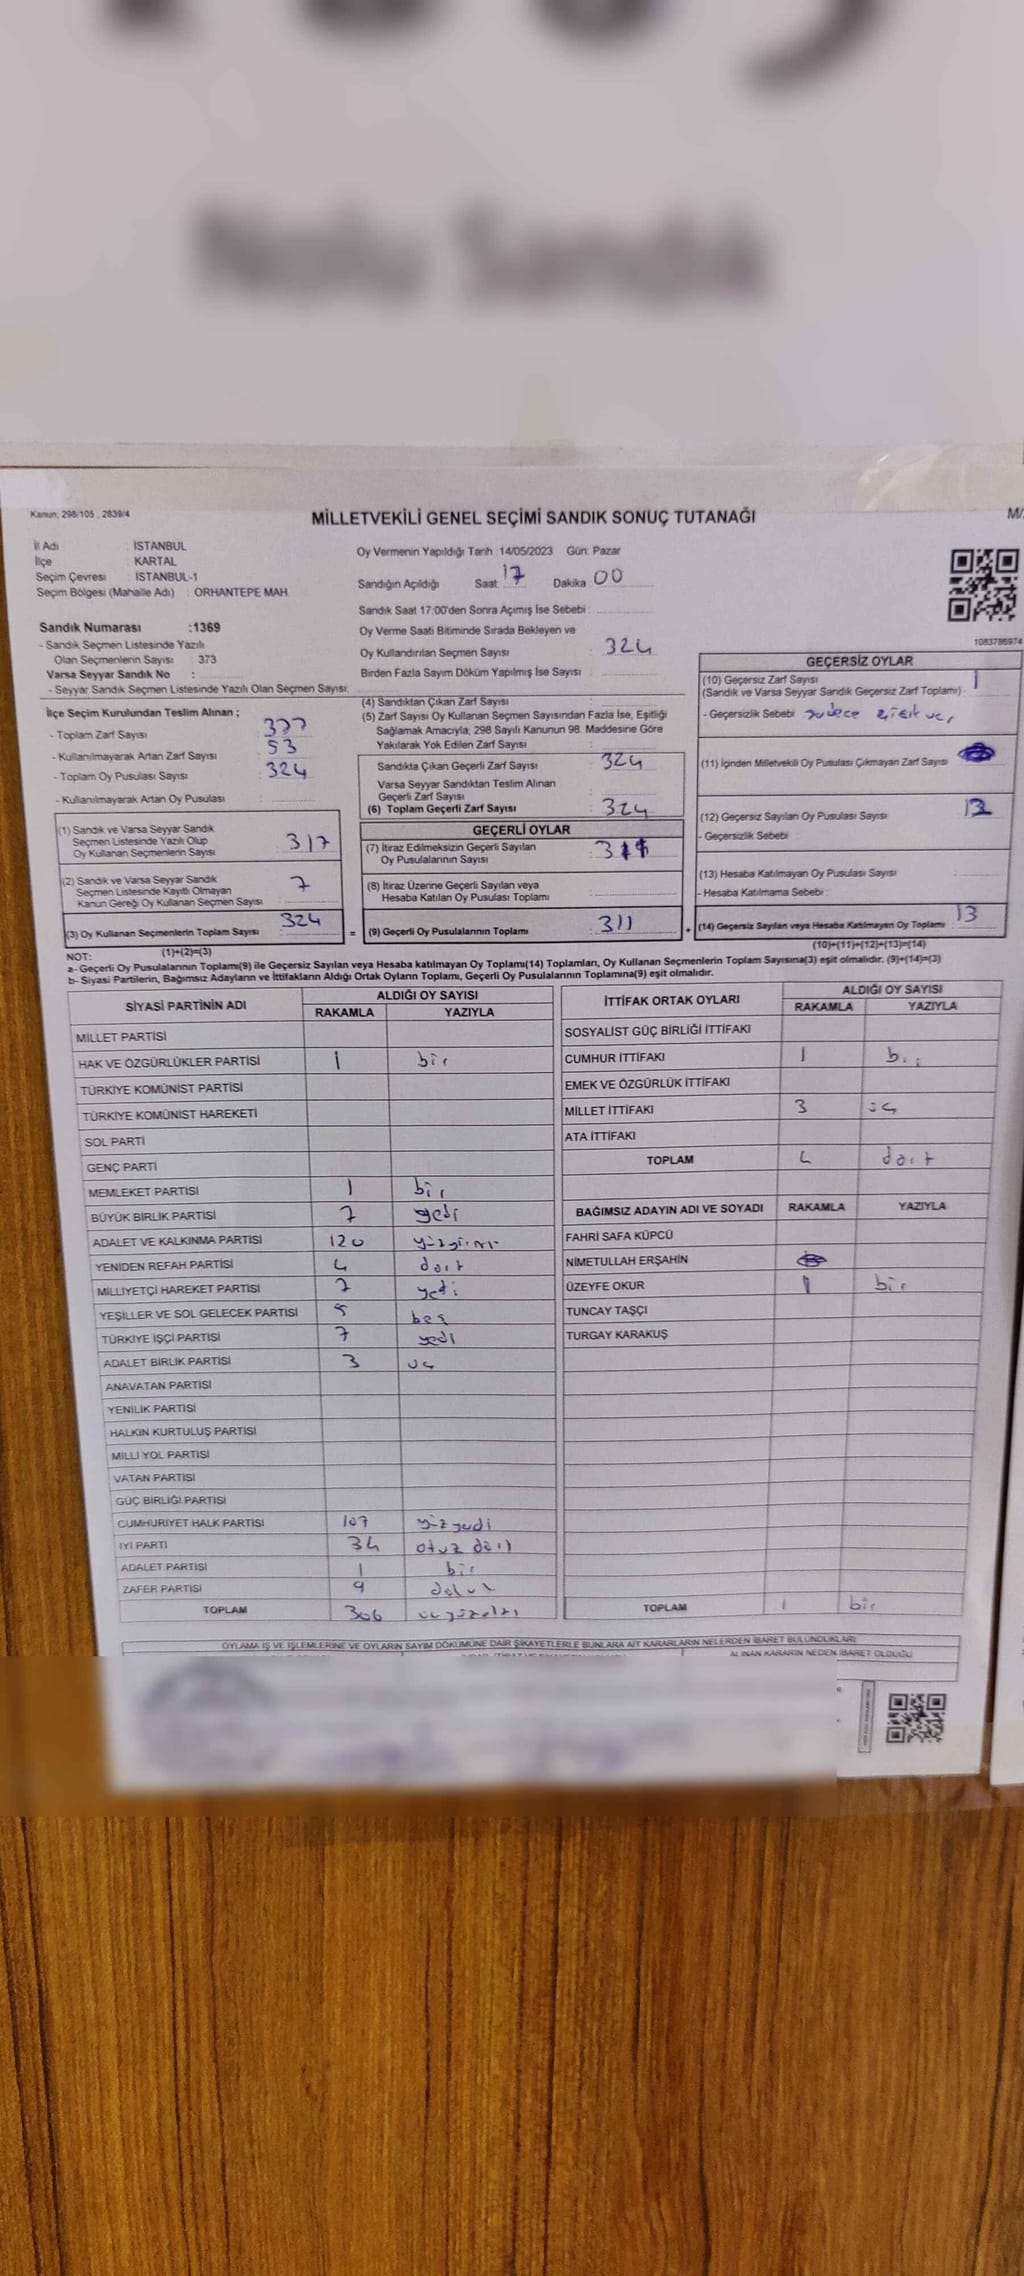 Nolu Sandık
Kanun: 298/105 , 2839/4
MİLLETVEKİLİ GENEL SEÇİMİ SANDIK SONUÇ TUTANAĞI
İl Adı : İSTANBUL
İlçe : KARTAL
Seçim Çevresi : İSTANBUL-1
Seçim Bölgesi (Mahalle Adı) : ORHANTEPE MAH.
Sandık Numarası :1369
- Sandık Seçmen Listesinde Yazılı
Olan Seçmenlerin Sayısı : 373
Varsa Seyyar Sandık No :
- Seyyar Sandık Seçmen Listesinde Yazılı Olan Seçmen Sayısı:
Oy Vermenin Yapıldığı Tarih :14/05/2023 Gün: Pazar
Sandığın Açıldığı Saat: 17 Dakika 00
Sandık Saat 17:00'den Sonra Açımış İse Sebebi :
Oy Verme Saati Bitiminde Sırada Bekleyen ve
Oy Kullandırılan Seçmen Sayısı : 324
Birden Fazla Sayım Döküm Yapılmış İse Sayısı :
1083786974
İlçe Seçim Kurulundan Teslim Alınan ;
- Toplam Zarf Sayısı : 377
- Kullanılmayarak Artan Zarf Sayısı : 53
- Toplam Oy Pusulası Sayısı : 324
- Kullanılmayarak Artan Oy Pusulası :
(1) Sandık ve Varsa Seyyar Sandık
Seçmen Listesinde Yazılı Olup
Oy Kullanan Seçmenlerin Sayısı : 317
(2) Sandık ve Varsa Seyyar Sandık
Seçmen Listesinde Kayıtlı Olmayan
Kanun Gereği Oy Kullanan Seçmen Sayısı : 7
(3) Oy Kullanan Seçmenlerin Toplam Sayısı : 324
(1)+(2)=(3)
(4) Sandıktan Çıkan Zarf Sayısı :
(5) Zarf Sayısı Oy Kullanan Seçmen Sayısından Fazla İse, Eşitliği
Sağlamak Amacıyla; 298 Sayılı Kanunun 98. Maddesine Göre
Yakılarak Yok Edilen Zarf Sayısı :
Sandıkta Çıkan Geçerli Zarf Sayısı : 324
Varsa Seyyar Sandıktan Teslim Alınan
Geçerli Zarf Sayısı :
(6) Toplam Geçerli Zarf Sayısı : 324
GEÇERLİ OYLAR
(7) İtiraz Edilmeksizin Geçerli Sayılan
Oy Pusulalarının Sayısı :
(8) İtiraz Üzerine Geçerli Sayılan veya
Hesaba Katılan Oy Pusulası Toplamı :
= (9) Geçerli Oy Pusulalarının Toplamı : 311 +
GEÇERSİZ OYLAR
(10) Geçersiz Zarf Sayısı 1
(Sandık ve Varsa Seyyar Sandık Geçersiz Zarf Toplamı) :
- Geçersizlik Sebebi : sadece
(11) İçinden Milletvekili Oy Pusulası Çıkmayan Zarf Sayısı :
(12) Geçersiz Sayılan Oy Pusulası Sayısı : 12
- Geçersizlik Sebebi :
(13) Hesaba Katılmayan Oy Pusulası Sayısı :
- Hesaba Katılmama Sebebi :
(14) Geçersiz Sayılan veya Hesaba Katılmayan Oy Toplamı : 13
(10)+(11)+(12)+(13)=(14)
NOT:
a- Geçerli Oy Pusulalarının Toplamı(9) ile Geçersiz Sayılan veya Hesaba katılmayan Oy Toplamı(14) Toplamları, Oy Kullanan Seçmenlerin Toplam Sayısına(3) eşit olmalıdır. (9)+(14)=(3)
b- Siyasi Partilerin, Bağımsız Adayların ve İttifakların Aldığı Ortak Oyların Toplamı, Geçerli Oy Pusulalarının Toplamına(9) eşit olmalıdır.
SİYASİ PARTİNİN ADI ALDIĞI OY SAYISI
RAKAMLA YAZIYLA
MİLLET PARTİSİ
HAK VE ÖZGÜRLÜKLER PARTİSİ 1 bir
TÜRKİYE KOMÜNİST PARTİSİ
TÜRKİYE KOMÜNİST HAREKETİ
SOL PARTİ
GENÇ PARTİ
MEMLEKET PARTİSİ 1 bir
BÜYÜK BİRLİK PARTİSİ 7 yedi
ADALET VE KALKINMA PARTİSİ 120 yüzyirmi
YENİDEN REFAH PARTİSİ 4 dört
MİLLİYETÇİ HAREKET PARTİSİ 7 yedi
YEŞİLLER VE SOL GELECEK PARTİSİ 5 beş
TÜRKİYE İŞÇİ PARTİSİ 7 yedi
ADALET BİRLİK PARTİSİ 3 üç
ANAVATAN PARTİSİ
YENİLİK PARTİSİ
HALKIN KURTULUŞ PARTİSİ
MİLLİ YOL PARTİSİ
VATAN PARTİSİ
GÜÇ BİRLİĞİ PARTİSİ
CUMHURİYET HALK PARTİSİ 107 yüzyedi
İYİ PARTİ 34 otuz dört
ADALET PARTİSİ 1 bir
ZAFER PARTİSİ 9 dokuz
TOPLAM 306 üçyüzaltı
İTTİFAK ORTAK OYLARI ALDIĞI OY SAYISI
RAKAMLA YAZIYLA
SOSYALİST GÜÇ BİRLİĞİ İTTİFAKI
CUMHUR İTTİFAKI 1 bir
EMEK VE ÖZGÜRLÜK İTTİFAKI
MİLLET İTTİFAKI 3 üç
ATA İTTİFAKI
TOPLAM 4 dört
BAĞIMSIZ ADAYIN ADI VE SOYADI RAKAMLA YAZIYLA
FAHRİ SAFA KÜPCÜ
NİMETULLAH ERŞAHİN
ÜZEYFE OKUR 1 bir
TUNCAY TAŞÇI
TURGAY KARAKUŞ
TOPLAM 1 bir
OYLAMA İŞ VE İŞLEMLERİNE VE OYLARIN SAYIM DÖKÜMÜNE DAİR ŞİKAYETLERLE BUNLARA AİT KARARLARIN NELERDEN İBARET BULUNDUKLARI
ALINAN KARARIN NEDEN İBARET OLDUĞU